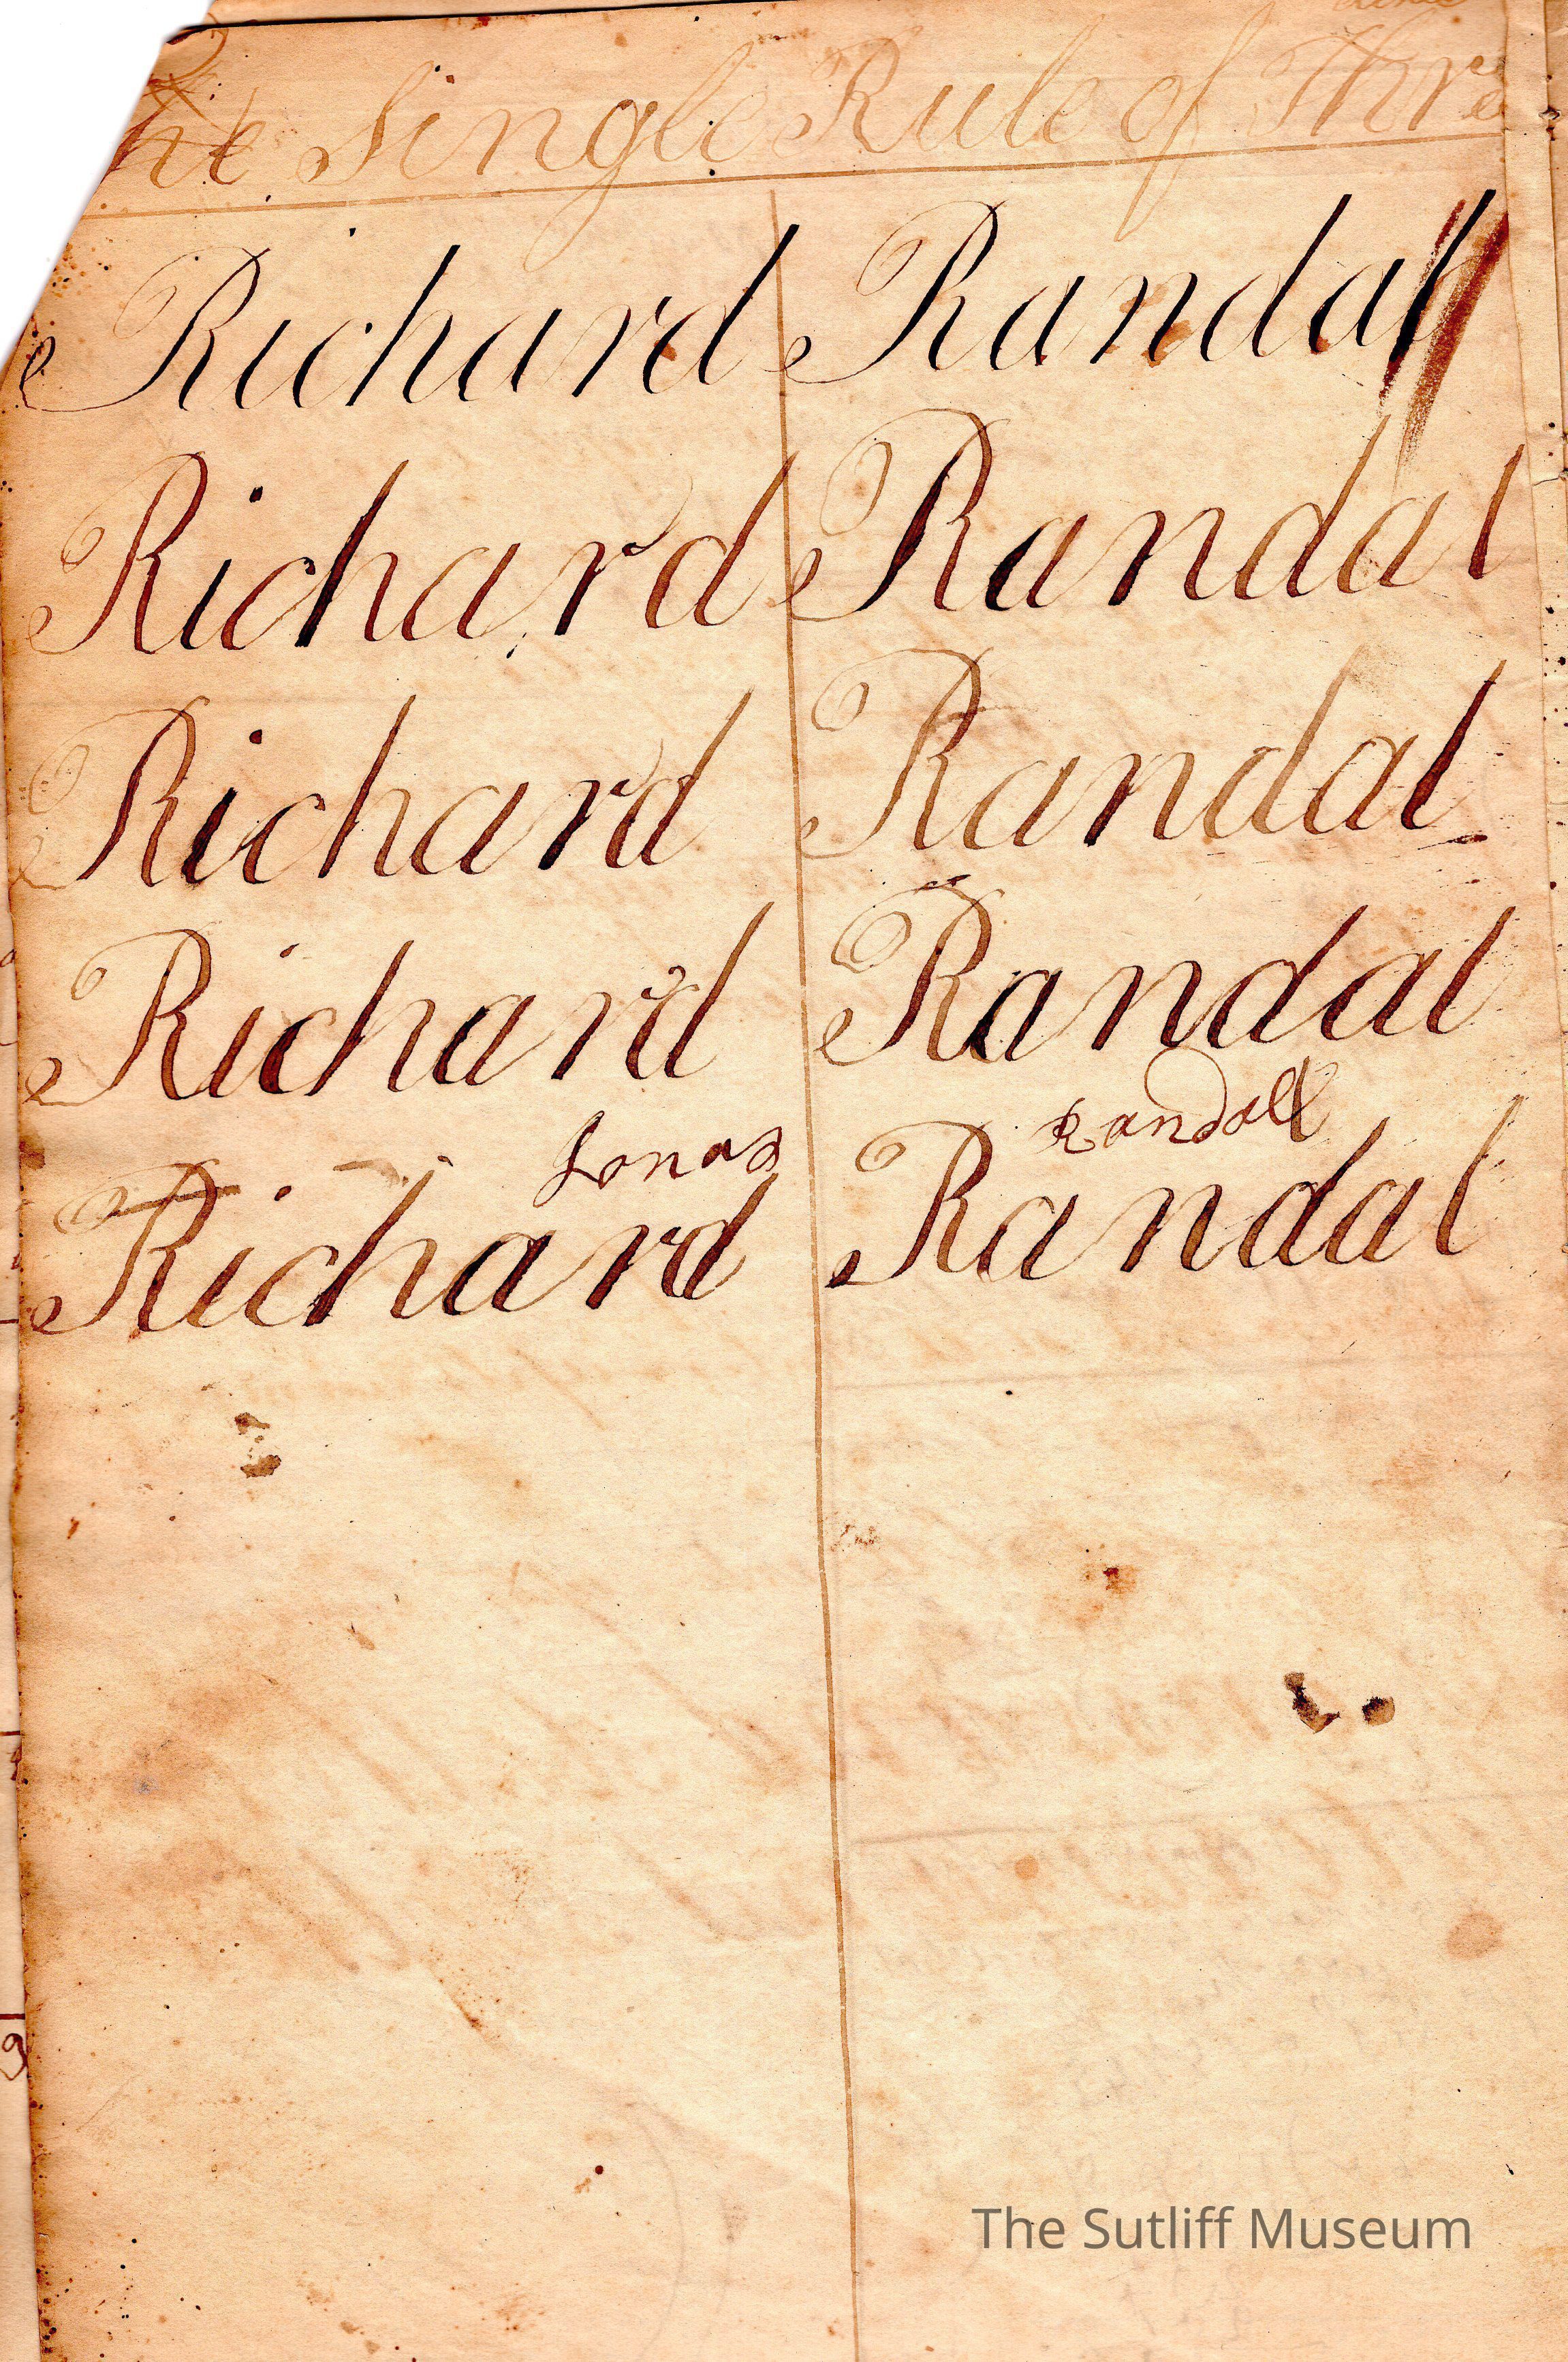 The Single Rule of Three
Richard Randall
Richard Randal
Richard Randal
Richard Randal
Jonas Randall
Richard Randal
9
The Sutliff Museum